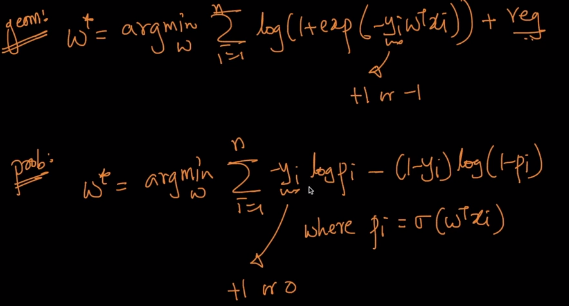 geom: w* = argmin_w Σ_{i=1}^{n} log(1+exp(-yi wᵀxi)) + reg
+1 or -1
prob: w* = argmin_w Σ_{i=1}^{n} -yi log pi - (1-yi) log(1-pi)
where pi = σ(wᵀxi)
+1 or 0